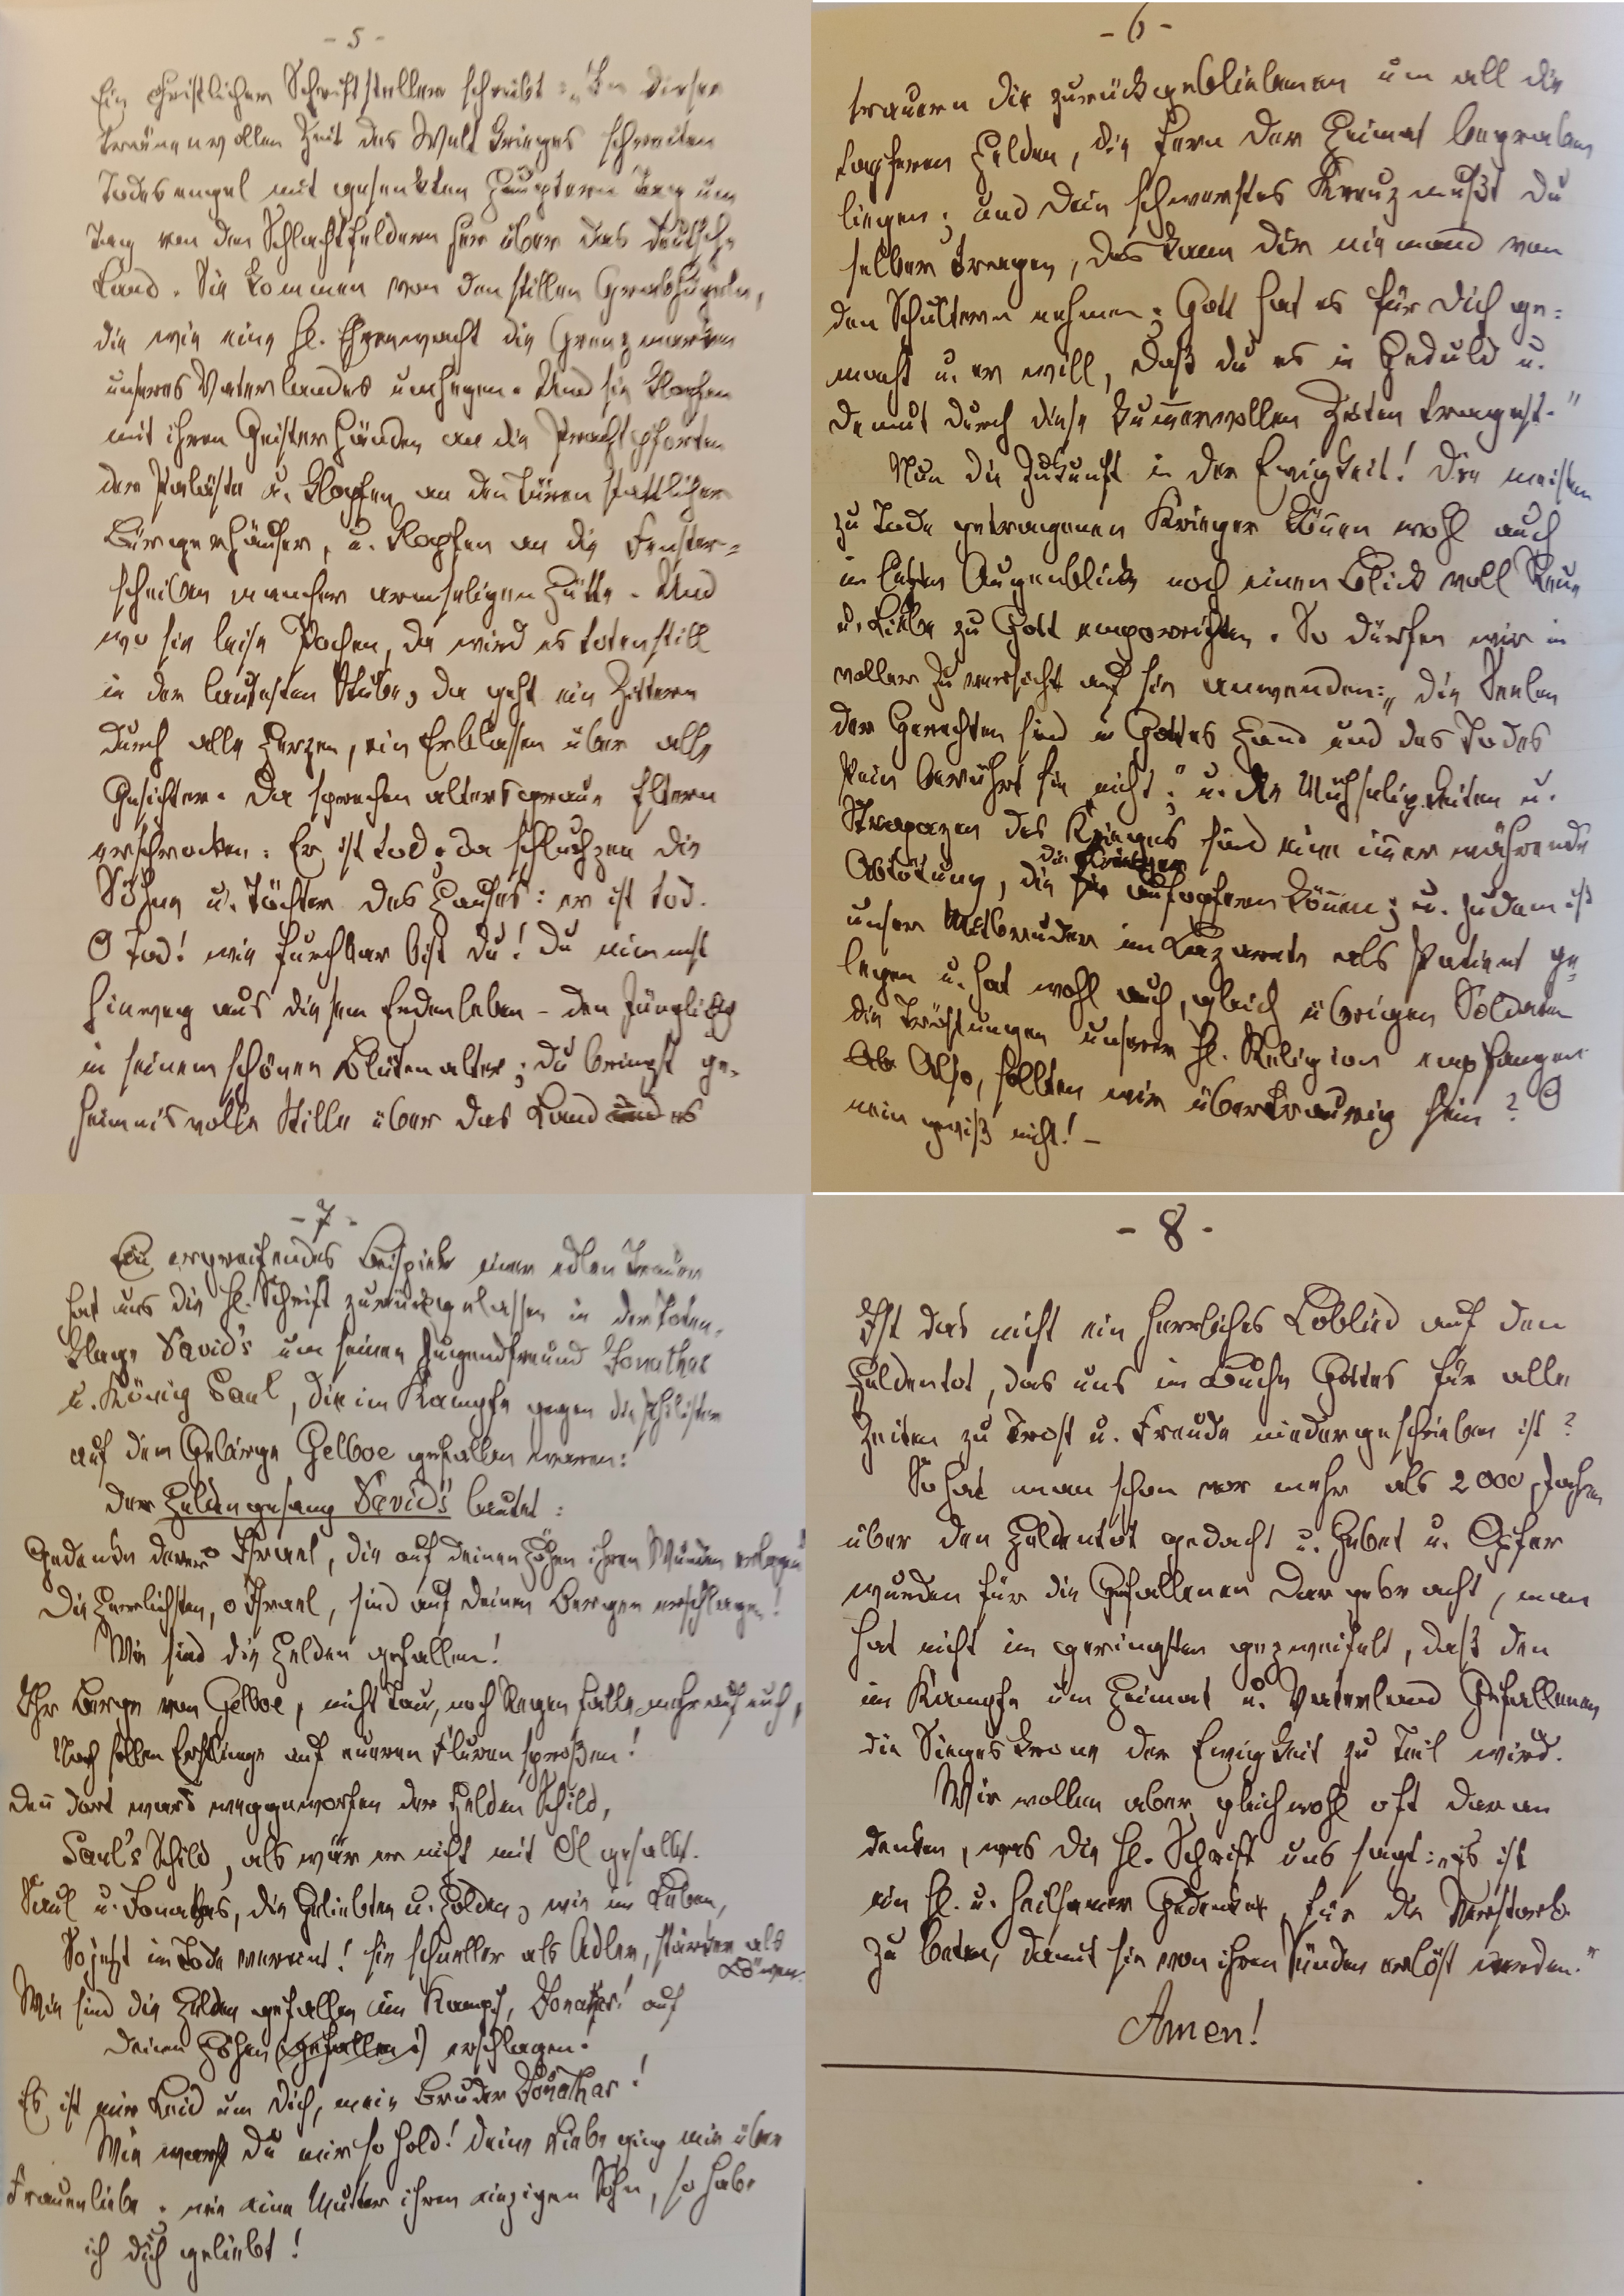 - 5 -
Ein christlicher Schriftsteller schreibt: „In dieser
tränenvollen Zeit des Weltkrieges schreiten
Todesengel mit gesenkten Häuptern Tag um
Tag von den Schlachtfeldern her über das deutsche
Land. Sie kommen von den stillen Grabhügeln,
die wie eine hl. Ehrenwacht die Grenzmarken
unseres Vaterlandes umhegen. Und sie klopfen
mit ihren Geisterhänden an die Prachtpforten
der Paläste u. klopfen an den Türen stattlicher
Bürgerhäuser, u. klopfen an die Fenster-
scheiben mancher armseligen Hütte. Und
wo sie leise pochen, da wird es totenstill
in der lautesten Stube, da geht ein Zittern
durch alle Herzen, ein Erblassen über alle
Gesichter. Da sprechen altersgraue Eltern
erschrocken: Er ist tod; da schluchzen die
Söhne u. Töchter des Hauses: er ist tod.
O Tod! wie furchbar bist du! Du nimmst
hinweg aus diesem Erdenleben - den Jüngling
in seinem schönen Blütenalter; du bringst ge-
heimnisvolle Stille über das Land und es
- 6 -
trauern die zurückgebliebenen um all die
tapferen Helden, die fern der Heimat begraben
liegen; und dein schwerstes Kreuz mußt du
selber tragen, das kann dir niemand von
den Schultern nehmen; Gott hat es für dich ge-
macht u. er will, daß du es in Geduld u.
Demut durch diese kum̅ervollen Zeiten tragest."
Nun die Zukunft in der Ewigkeit! Die meisten
zu Tode getragenen Krieger kön̅en wohl auch
im letzten Augenblicke noch einen Blick voll Reue
u. Liebe zu Gott emporrichten. So dürfen wir in
voller Zuversicht auf sie anwenden: „die Seelen
der Gerechten sind in Gottes Hand und des Todes
Pein berührt sie nicht"; u. die Mühseligkeiten u.
Strapazen des Krieges sind eine im̅erwährende
die Krieger
Abtötung, die sie aufopfern kön̅en; u. zudem ist
unser Mitbruder im Lazarete als Patient ge-
legen u. hat wohl auch, gleich übrigen Soldaten
die Tröstungen unserer hl. Religion empfangen
Also, sollten wir übertraurig sein? O
nein gewiß nicht! -
- 7 -
Ein ergreifendes Beispiel einer edlen Trauer
hat uns die hl. Schrift zurückgelassen in der Toten-
klage David's um seinen Jugendfreund Jonathas
u. König Saul, die im Kampfe gegen die Philister
auf dem Gebirge Gelboe gefallen waren:
Der Heldengesang David's lautet:
Gedenke derer o Israel, die auf deinen Höhen ihren Wunden erlagen!
Die Herrlichsten, o Israel, sind auf deinen Bergen erschlagen!
Wie sind die Helden gefallen!
Ihr Berge von Gelboe, nicht Tau, noch Regen falle mehr auf euch,
Noch sollen Erstlinge auf eueren Fluren sproßen!
Den̅ dort ward weggeworfen der Helden Schild,
Saul's Schild, als wär er nicht mit Öl gesalbt.
Saul u. Jonathas, die Geliebten u. Holden, wie im Leben,
So jetzt im Tode vereint! sie schneller als Adler, stärker als
Löwen.
Wie sind die Helden gefallen im Kampf, Jonathas! auf
deinen Höhen (gefallen:) erschlagen!
Es ist mir Leid um dich, mein Bruder Jonathas!
Wie warst du mir so hold! Deine Liebe ging mir über
Frauenliebe; wie eine Mutter ihren einzigen Sohn, so habe
ich dich geliebt!
- 8 -
Ist das nicht ein herrliches Loblied auf den
Heldentot, das uns im Buche Gottes für alle
Zeiten zu Trost u. Freude niedergeschrieben ist?
So hat man schon vor mehr als 2000 Jahren
über den Heldentot gedacht u. Gebet u. Opfer
wurden für die Gefallenen dargebracht, man
hat nicht im geringsten gezweifelt, daß den
im Kampfe um Heimat u. Vaterland Gefallenen
die Siegeskrone der Ewigkeit zu Teil wird.
Wir wollen aber gleichwohl oft daran
denken, was die hl. Schrift uns sagt: „es ist
ein hl. u. heilsamer Gedanke, für die Verstorb.
zu beten, damit sie von ihren Sünden erlöst werden."
Amen!